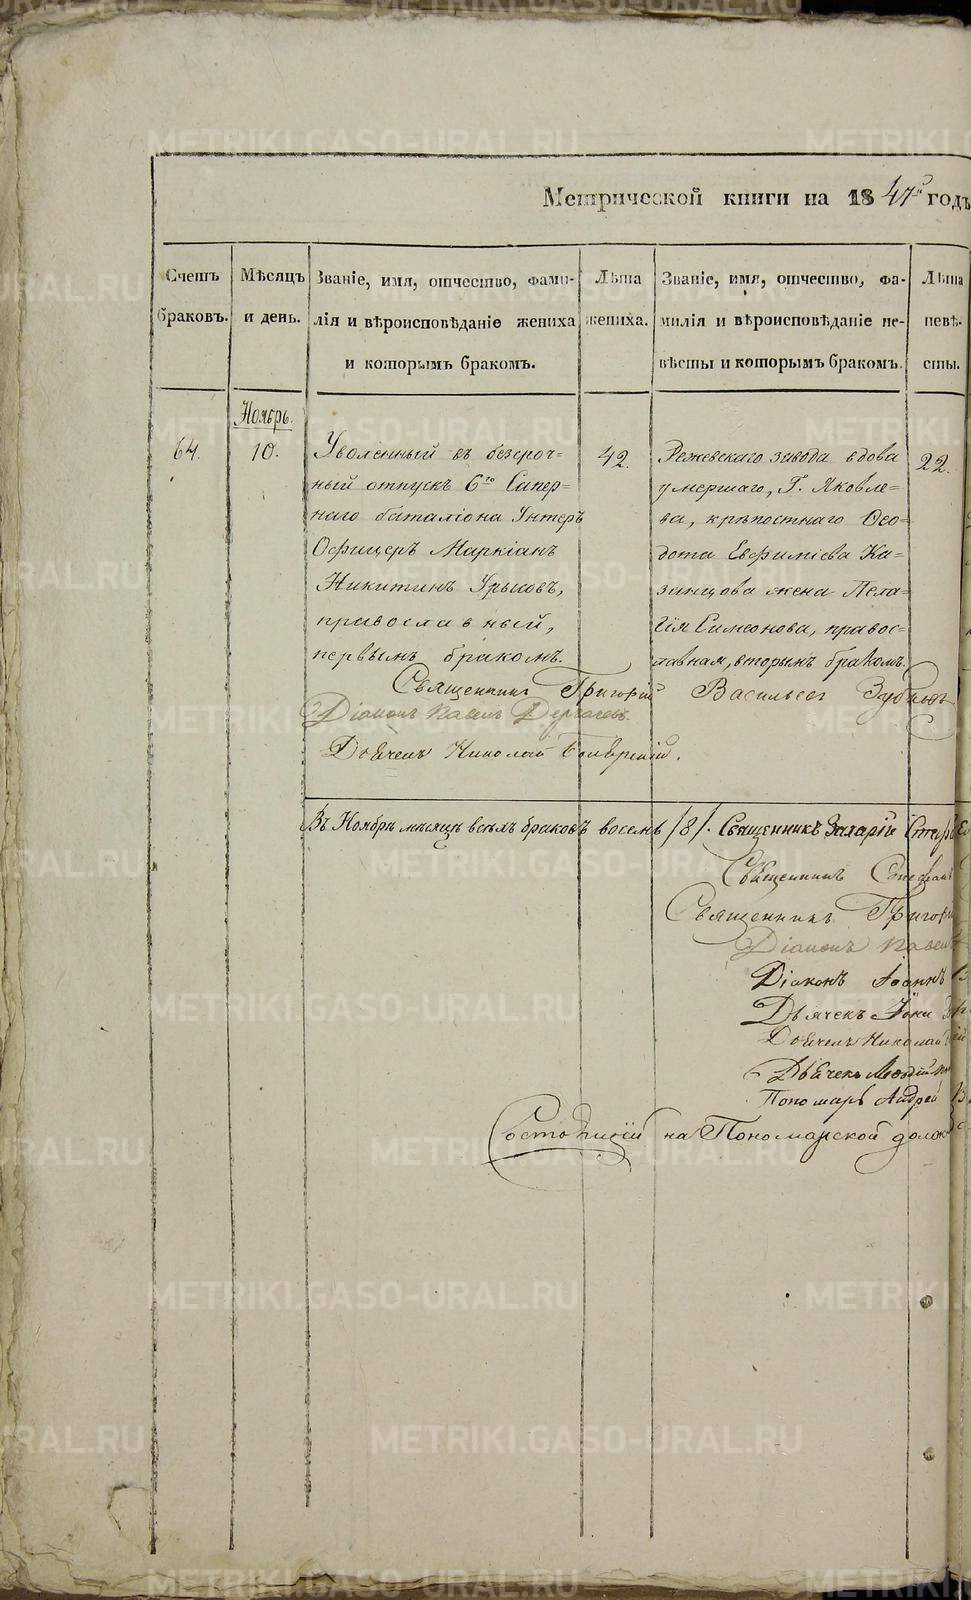 Метрической книги на 1847й годъ
Счетъ браковъ.
Мѣсяцъ и день.
Званіе, имя, отчество, фами-
лія и вѣроисповѣданіе жениха
и которымъ бракомъ.
Лѣта жениха.
Званіе, имя, отчество, фа-
милія и вѣроисповѣданіе не-
вѣсты и которымъ бракомъ.
Лѣта невѣ-
сты.
Ноябрь.
64.
10.
Уволенный въ безсроч-
ный отпускъ 6го Сапер-
наго баталіона Унтеръ
Офицеръ Маркіанъ
Никитинъ Урысовъ,
православный,
первымъ бракомъ.
42.
Режевскаго завода вдова
умершаго, Г. Яковле-
ва, крѣпостнаго Ѳео-
дота Евфиміева Ка-
занцова жена Пела-
гія Симеонова, правос-
лавная, вторымъ бракомъ.
22.
Священникъ Григорій Васильевъ
Діаконъ Павелъ
Дьячекъ Николай
Въ Ноябрѣ мѣсяцѣ всѣхъ браковъ восемь /8/. Священникъ Захарій
Священникъ Стефанъ
Священникъ Григорій
Діаконъ Павелъ
Діаконъ Іоаннъ
Дьячекъ Іона
Дьячекъ Николай
Дьячекъ
Пономарь Андрей
Состоящій на Пономарской
METRIKI.GASO-URAL.RU